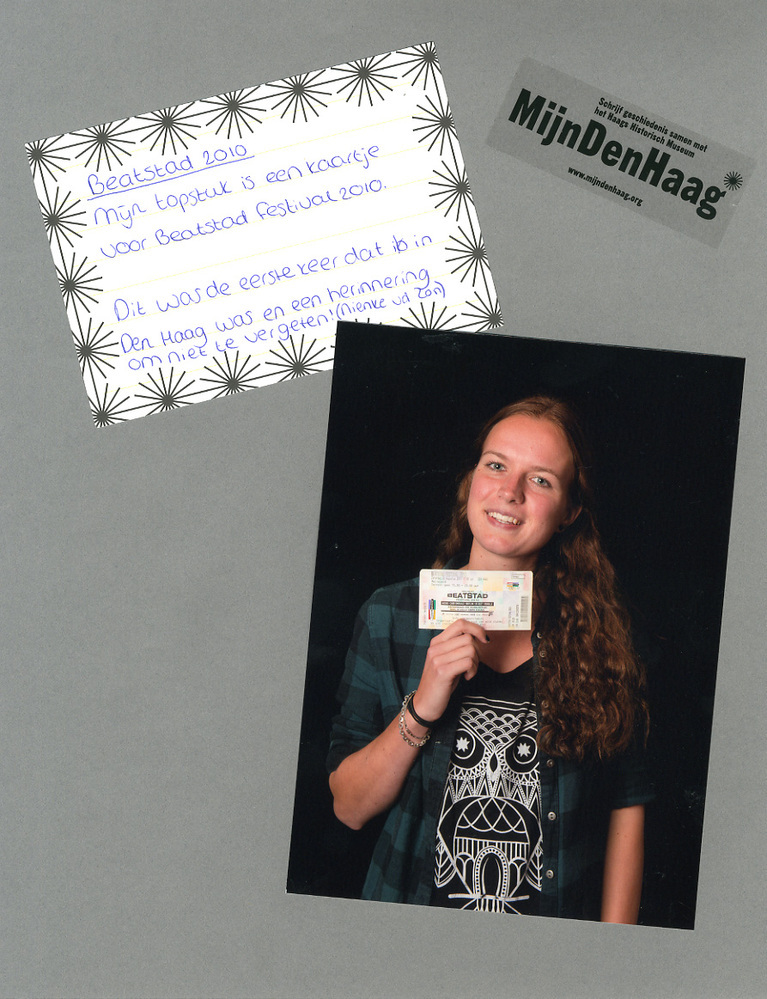 Beatstad 2010
Mijn topstuk is een kaartje
voor Beatstad festival 2010.
Dit was de eerste keer dat ik in
Den Haag was en een herinnering
om niet te vergeten! (Nienke vd Zon)
Schrijf geschiedenis samen met
het Haags Historisch Museum
MijnDenHaag
www.mijndenhaag.org
BEATSTAD